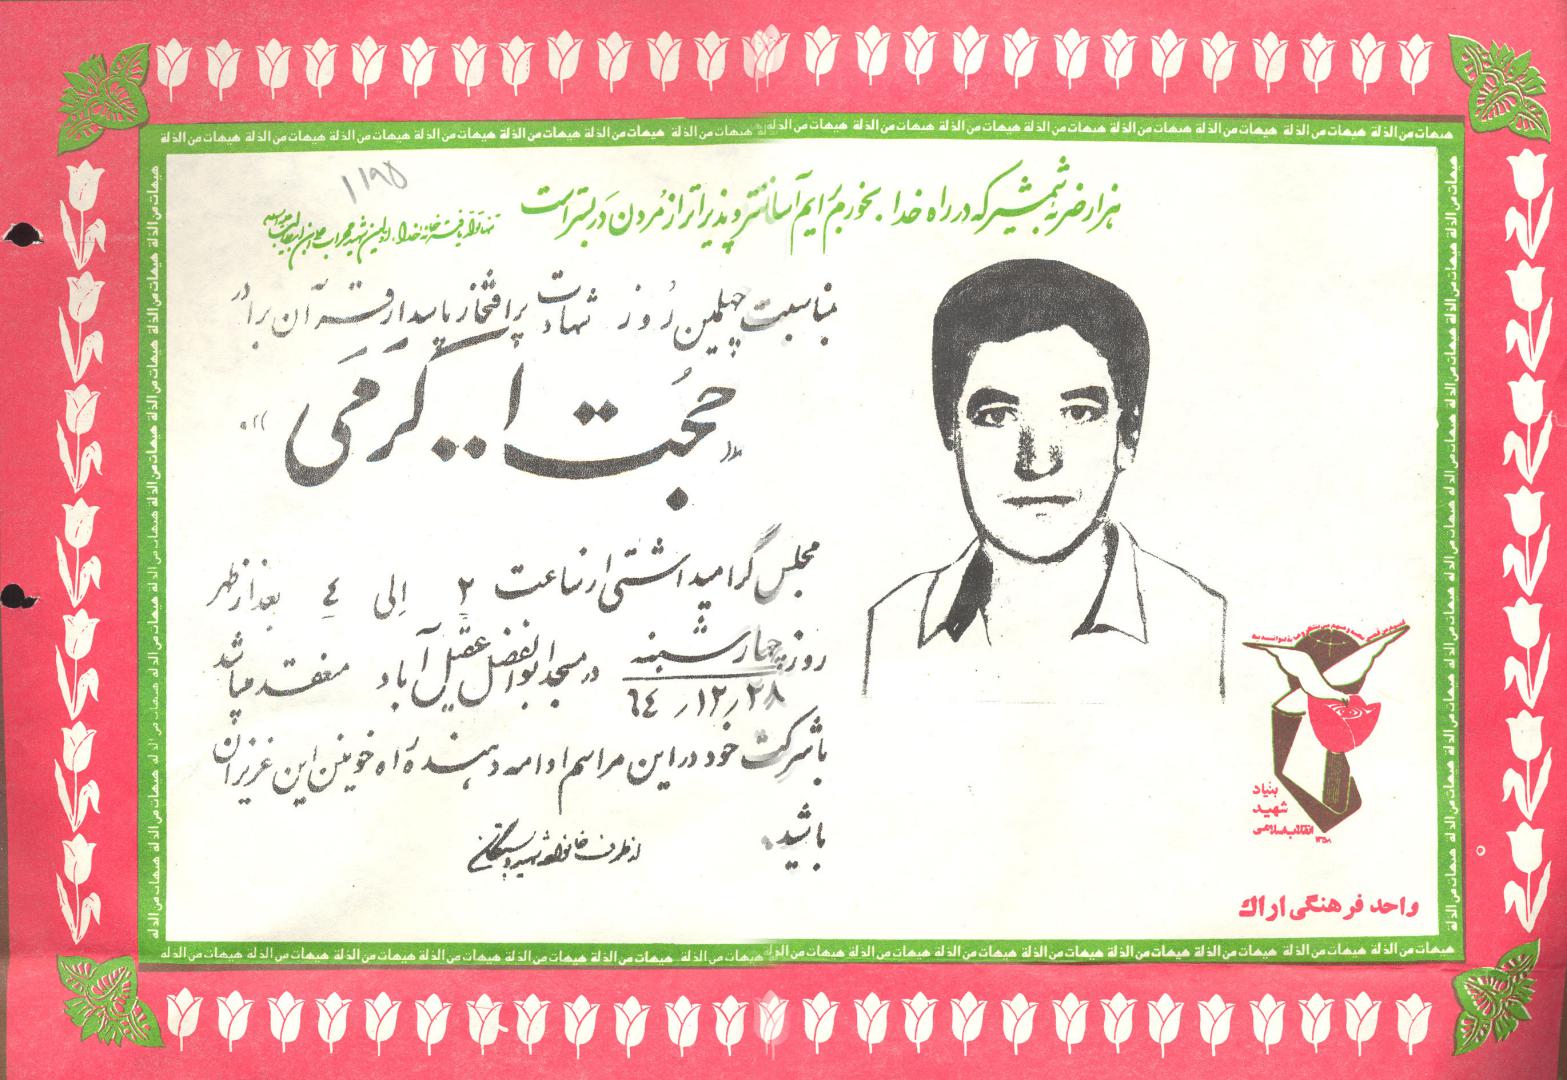 هیهات من الذلة هیهات من الذلة هیهات من الذلة هیهات من الذلة هیهات من الذلة هیهات من الذلة
هزار ضربه شمشیر که در راه خدا بخورم برایم آسانتر و پذیراتر از مردن در بستر است
۱۱۹۵
بمناسبت چهلمین روز شهادت پرافتخار پاسدار قرآن برادر
«حجت ا... کرمی»
مجلس گرامیداشتی از ساعت ۲ الی ٤ بعد از ظهر
روز چهارشنبه ٦٤/١٢/٢٨ در مسجد ابوالفضل عقیل آباد منعقد میباشد
با شرکت خود در این مراسم ادامه دهنده راه خونین این عزیزان
باشید.
از طرف خانواده شهید و بستگان
بنیاد
شهید
انقلاب اسلامی
۱۳۵۸
واحد فرهنگی اراك